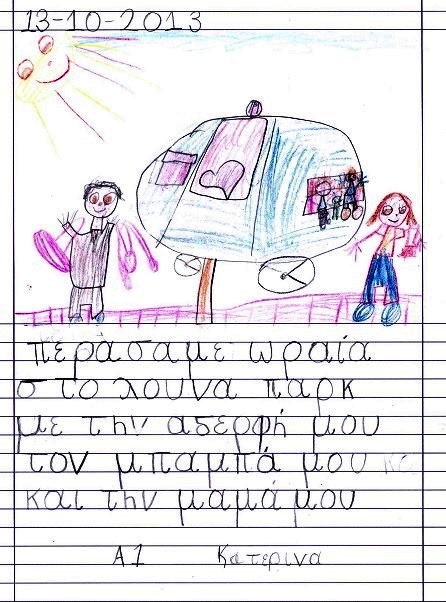 13-10-2013
περάσαμε ωραία
στο λουνα παρκ
με την αδερφή μου
τον μπαμπά μου κα
και την μαμά μου
Α1 Κατερινα